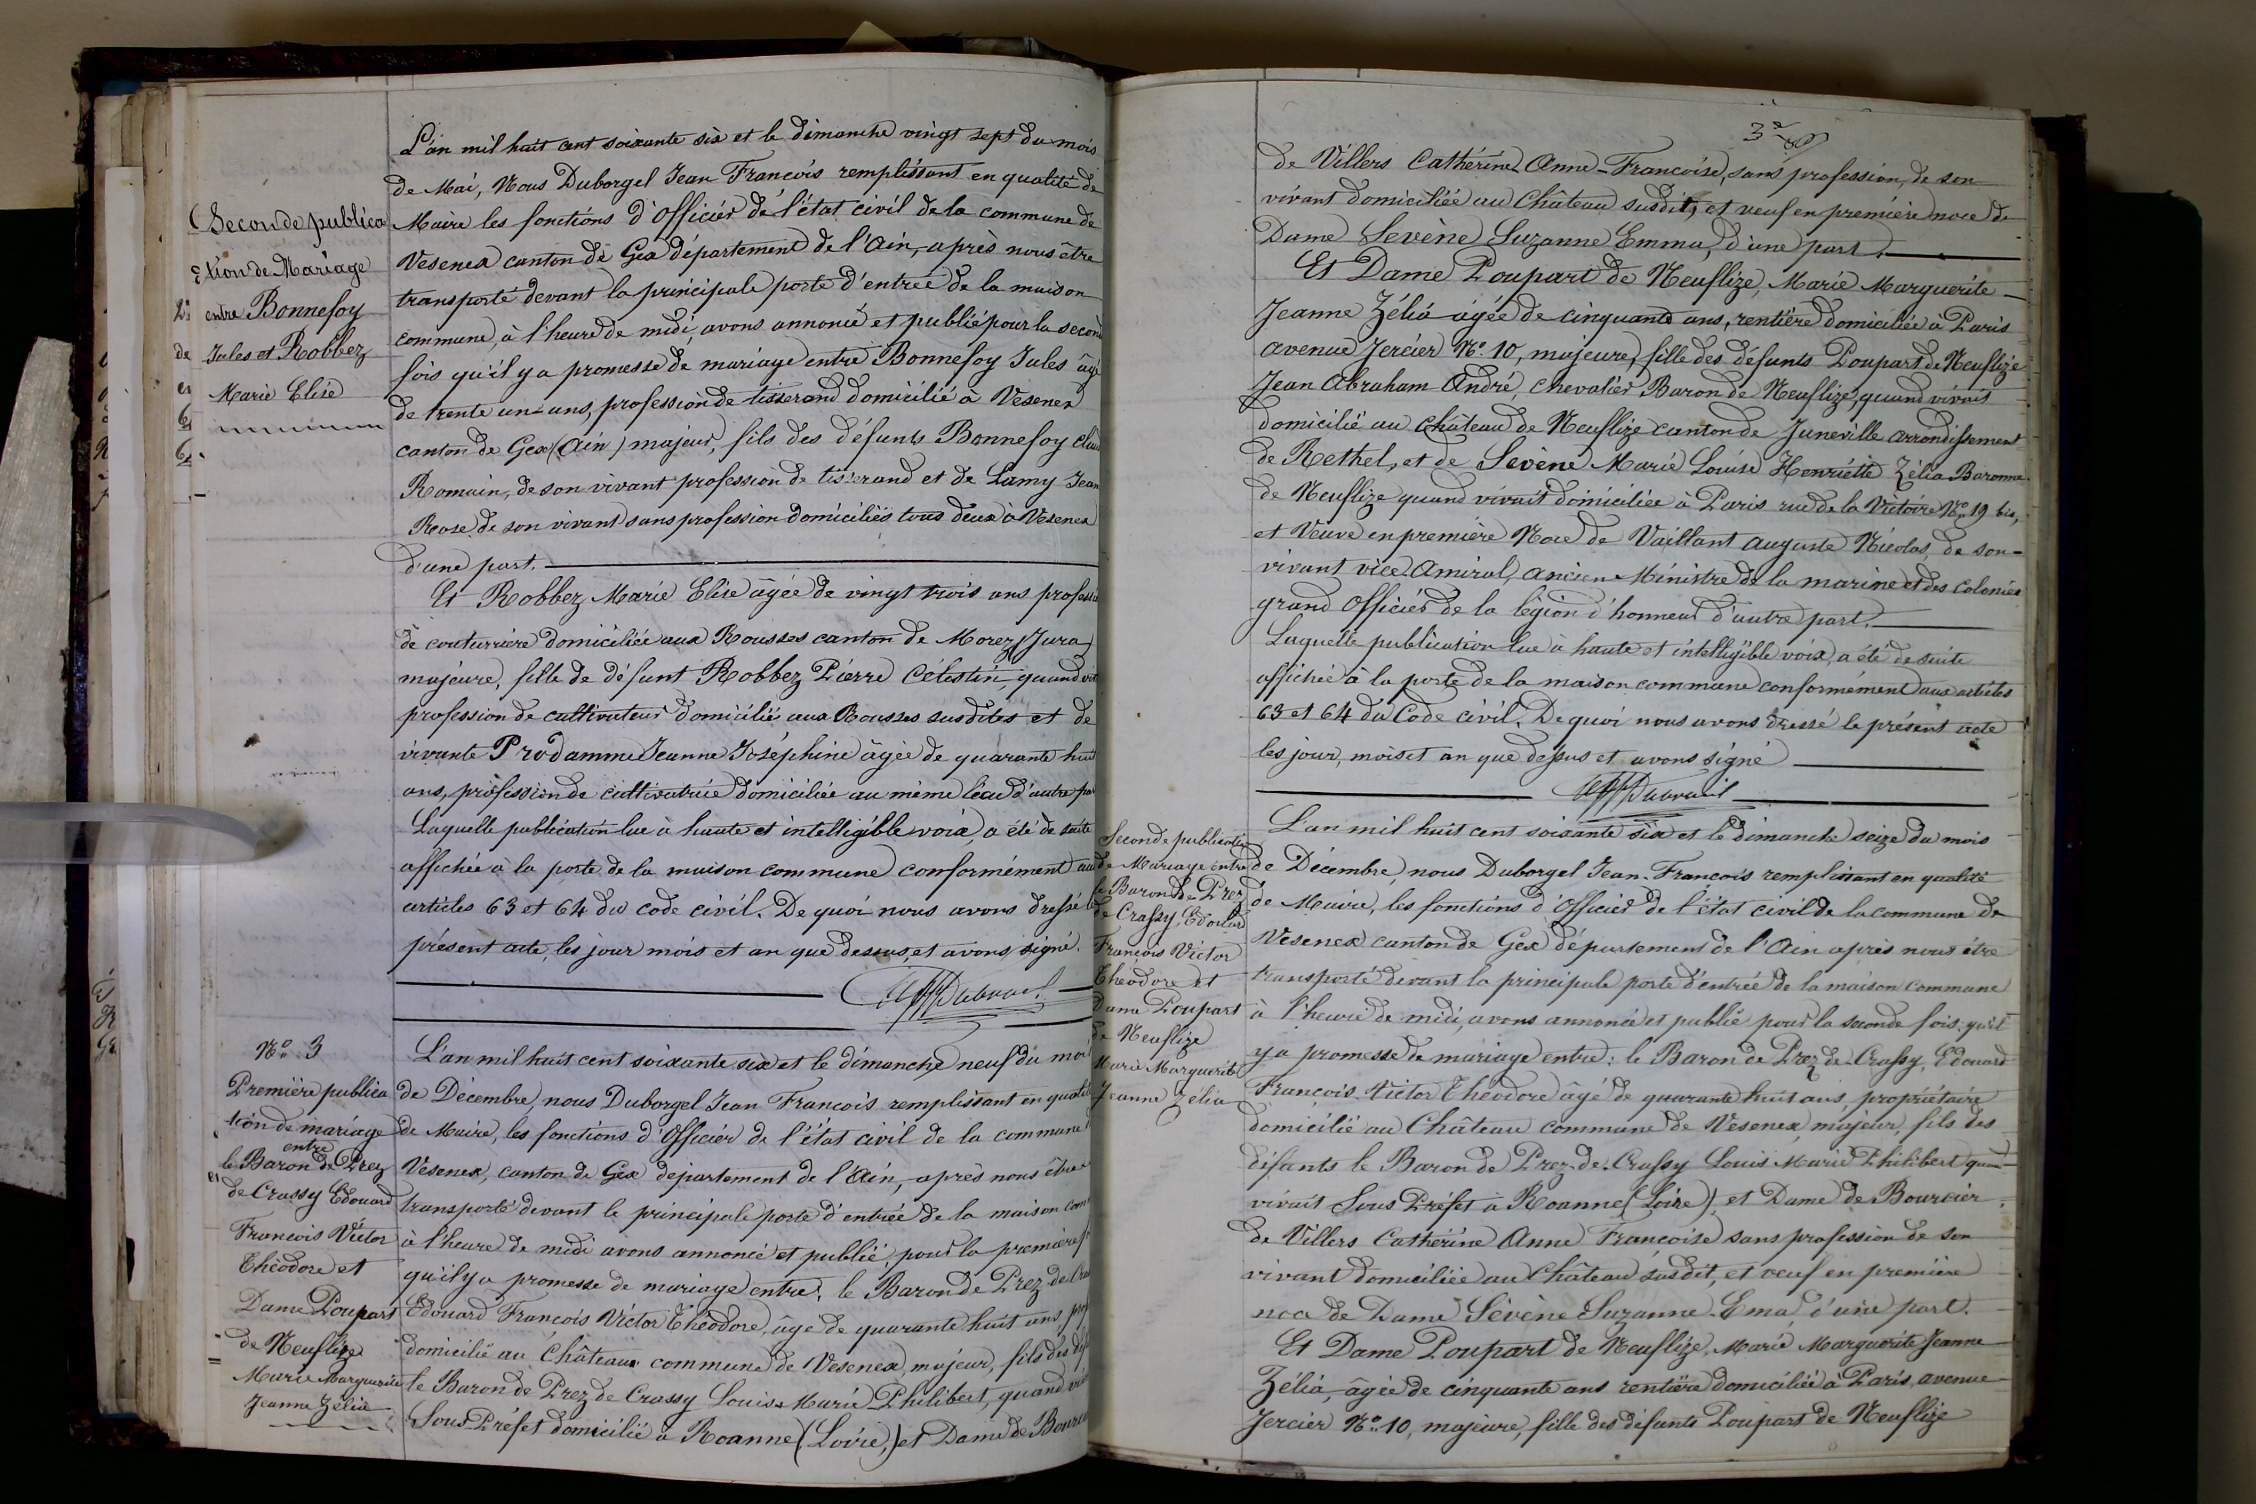 Seconde publica
tion de Mariage
entre Bonnefoy
Jules et Robbez
Marie Elise
L'an mil huit cent soixante six et le dimanche vingt sept du mois
de Mai, Nous Duborgel Jean François remplissant en qualité de
Maire les fonctions d'Officier de l'état civil de la commune de
Vesenex canton de Gex département de l'Ain, après nous être
transporté devant la principale porte d'entrée de la maison
commune, à l'heure de midi, avons annoncé et publié pour la second
fois qu'il y a promesse de mariage entre Bonnefoy Jules âgé
de trente un ans, profession de tisserand domicilié à Vesenex
canton de Gex (Ain) majeur, fils des défunts Bonnefoy
Romain, de son vivant profession de tisserand et de Lamy Jean
Rose de son vivant sans profession domiciliés tous deux à Vesenex
d'une part.
Et Robbez Marie Elise âgée de vingt trois ans profess
de couturière domiciliée aux Rousses canton de Morez (Jura)
majeure, fille de défunt Robbez Pierre Célestin, quand vi
profession de cultivateur domicilié aux Rousses susdites et de
vivante Prodamme Jeanne Joséphine âgée de quarante huit
ans, profession de cultivatrice domiciliée au même lieu d'autre pa
Laquelle publication lue à haute et intelligible voix, a été de suite
affichée à la porte de la maison commune conformément au
articles 63 et 64 du code civil. De quoi nous avons dressé le
présent acte, les jour mois et an que dessus, et avons signé.
N° 3
Première publica
tion de mariage
entre
le Baron de Prez
de Crassy Edouard
François Victor
Théodore et
Dame Poupart
de Neuflize
Marie Marguerite
Jeanne Zélia
L'an mil huit cent soixante six et le dimanche neuf du moi
de Décembre, nous Duborgel Jean François remplissant en qualit
de Maire, les fonctions d'Officier de l'état civil de la commune
Vesenex, canton de Gex département de l'Ain, après nous être
transporté devant le principale porte d'entrée de la maison com
à l'heure de midi avons annoncé et publié, pour la première f
qu'il y a promesse de mariage entre, le Baron de Prez de Cra
Edouard François Victor Théodore, âgé de quarante huit ans pro
domicilié au Château commune de Vesenex, majeur, fils des dé
le Baron de Prez de Crassy Louis Marie Philibert, quand viv
Sous Préfet domicilié à Roanne (Loire,) et Dame de Bourc
3e
de Villers Cathérine-Anne-Françoise, sans profession, de son
vivant domiciliée au Château susdit, et veuf en première noce de
Dame Sevène Suzanne Emma, d'une part.
Et Dame Poupart de Neuflize, Marie Marguerite
Jeanne Zélia âgée de cinquante ans, rentière domiciliée à Paris
avenue Jercier N° 10, majeure, fille des défunts Poupart de Neuflize
Jean Abraham André, chevalier Baron de Neuflize, quand vivait
domicilié au château de Neuflize canton de Juneville arrondissement
de Rethel, et de Sevène Marie Louise Henriette Zélia Baronne
de Neuflize quand vivait domiciliée à Paris rue de la Victoire N° 19 bis,
et Veuve en première Noce de Vaillant Auguste Nicolas, de son-
vivant vice-Amiral, ancien Ministre de la marine et des colonies
grand Officier de la légion d'honneur d'autre part.
Laquelle publication lue à haute et intelligible voix, a été de suite
affichée à la porte de la maison commune conformément aux articles
63 et 64 du Code civil. De quoi nous avons dressé le présent acte
les jour, mois et an que dessus et avons signé
Seconde publication
de Mariage entre
le Baron de Prez
de Crassy, Edouard
François Victor
Théodore et
Dame Poupart
de Neuflize
Marie Marguerite
Jeanne Zélia
L'an mil huit cent soixante six et le dimanche seize du mois
de Décembre, nous Duborgel Jean-François remplissant en qualité
de Maire, les fonctions d'Officier de l'état civil de la commune de
Vesenex canton de Gex département de l'Ain après nous être
transporté devant la principale porte d'entrée de la maison commune
à l'heure de midi, avons annoncé et publié pour la seconde fois, qu'il
y a promesse de mariage entre: le Baron de Prez de Crassy, Edouard
François-Victor Théodore âgé de quarante huit ans, propriétaire
domicilié au Château commune de Vesenex, majeur, fils des
défunts le Baron de Prez-de-Crassy Louis Marie Philibert quand
vivait Sous Préfet à Roanne (Loire), et Dame de Bourcier
de Villers Cathérine Anne Françoise sans profession de son
vivant domiciliée au Château susdit, et veuf en première
noce de Dame Sévène Suzanne-Ema, d'une part.
Et Dame Poupart de Neuflize, Marie Marguerite Jeanne
Zélia, âgée de cinquante ans rentière domiciliée à Paris, avenue
Jercier N° 10, majeure, fille des défunts Poupart de Neuflize